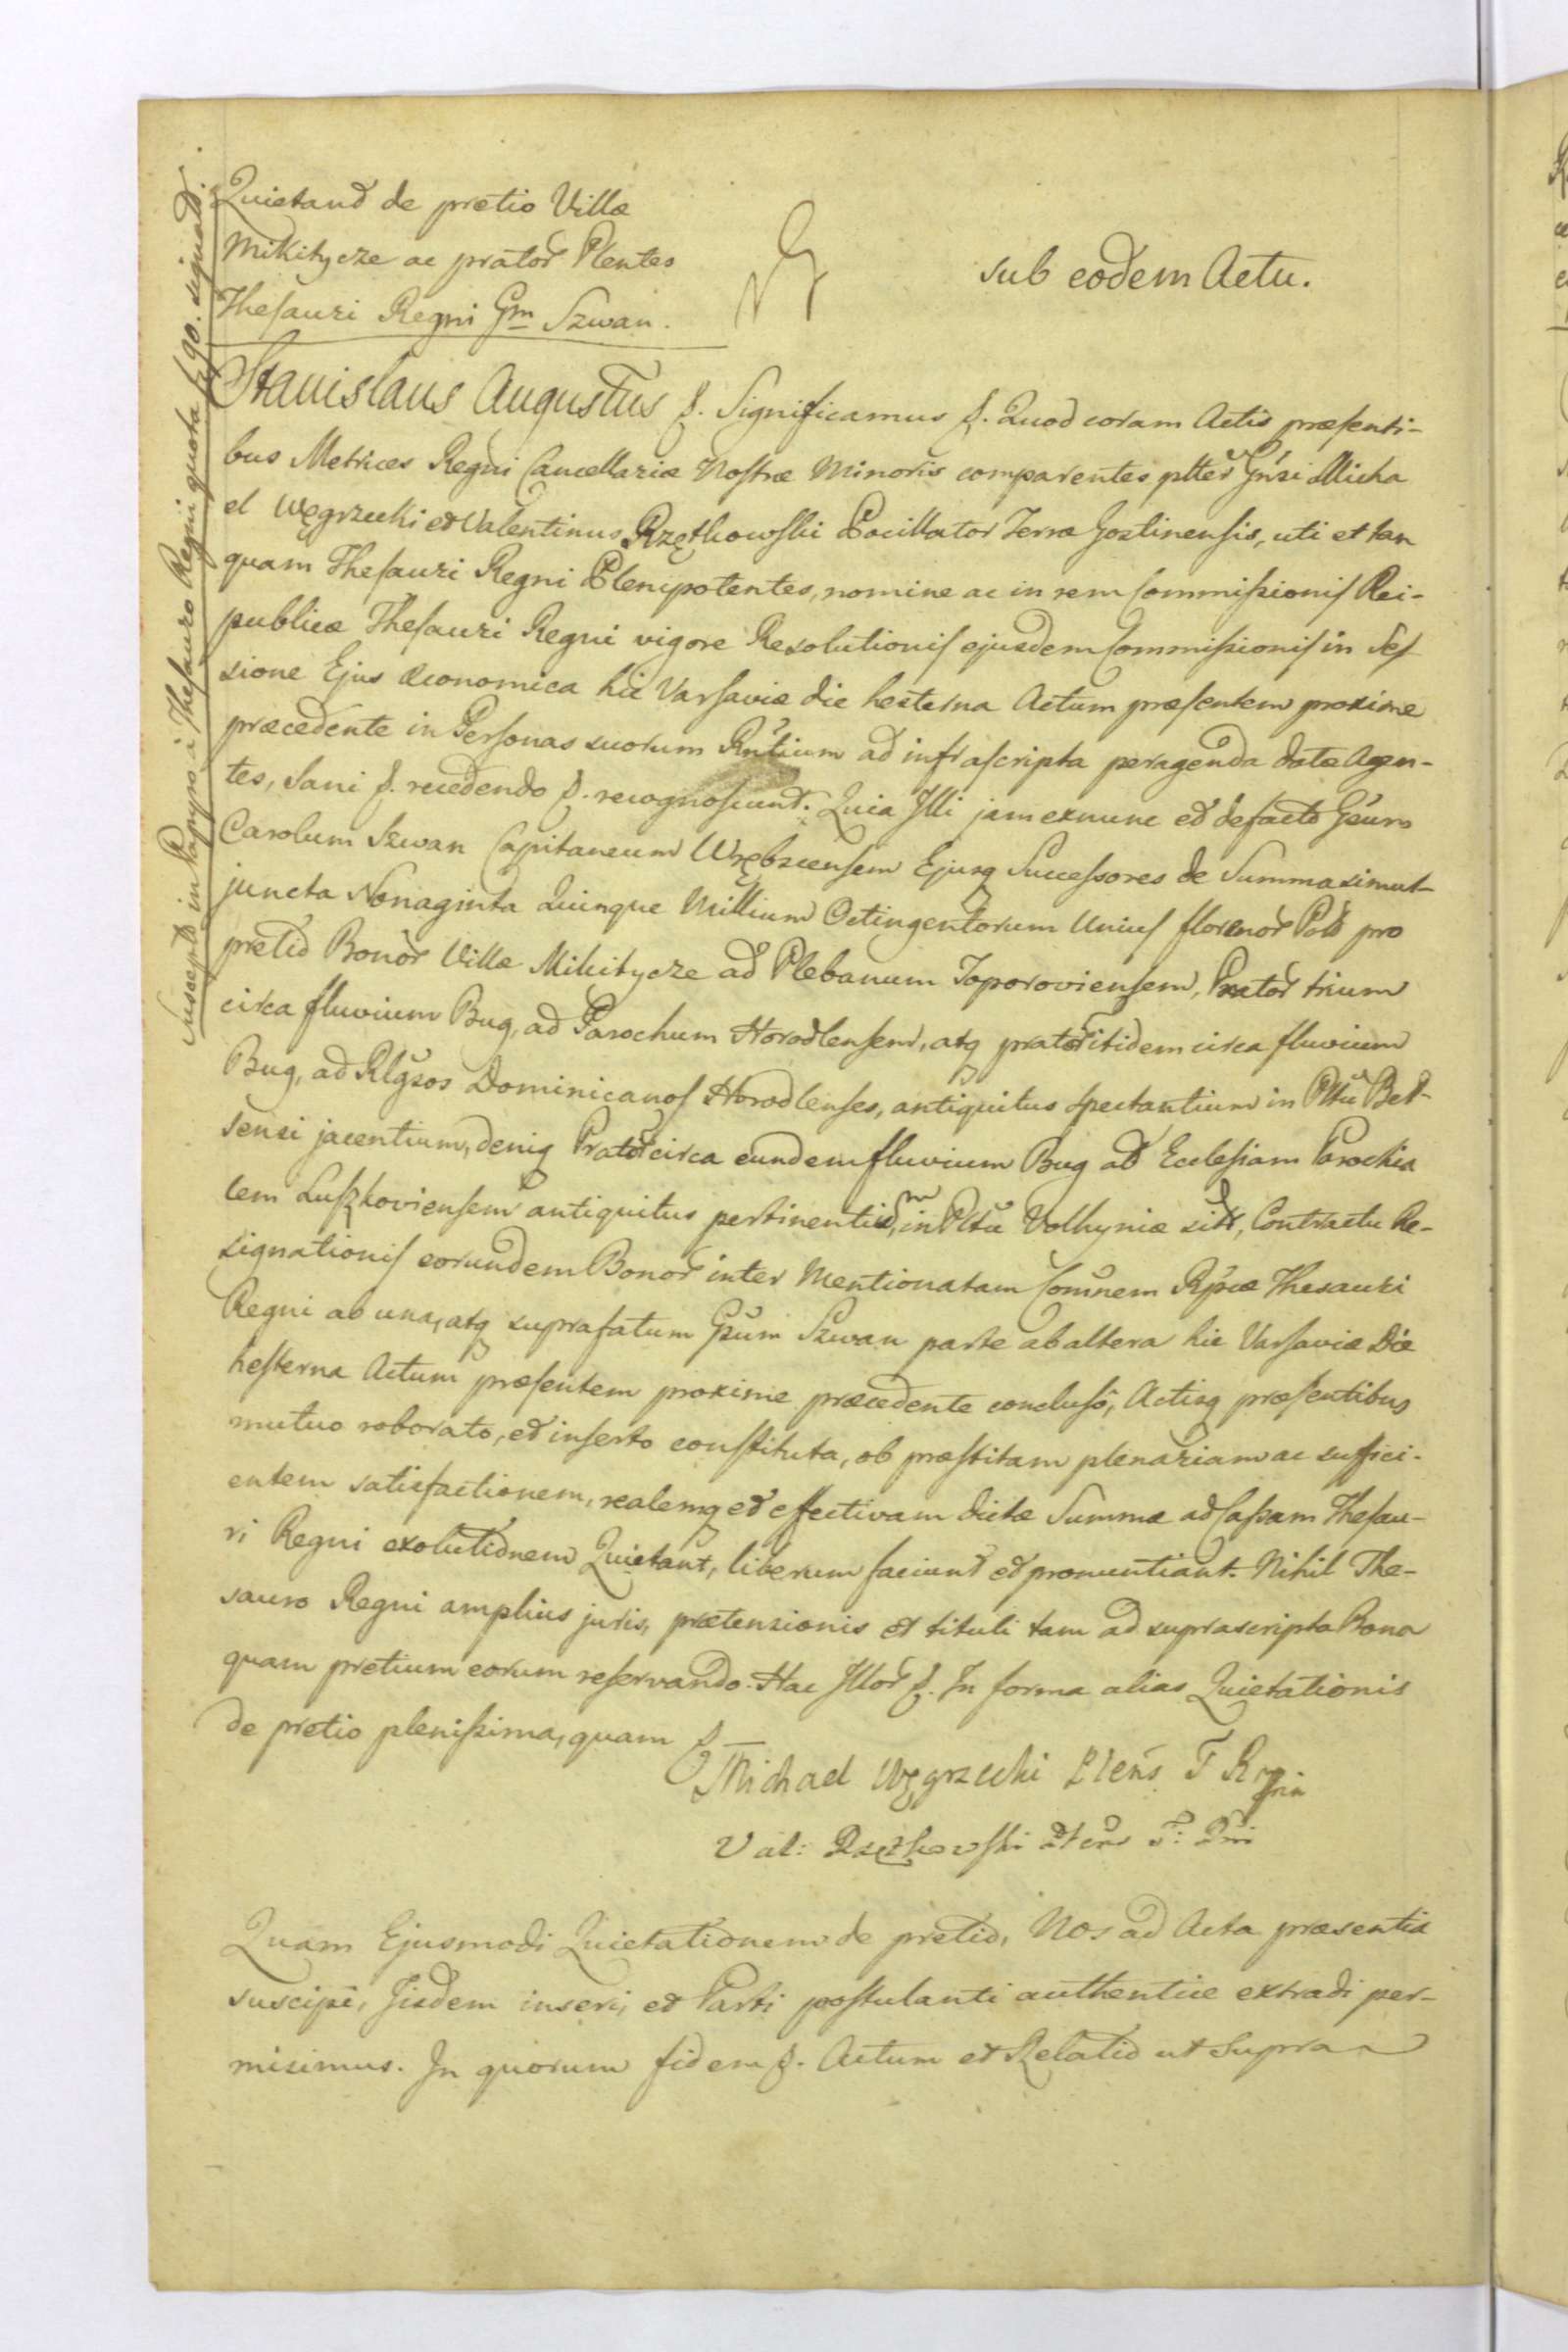 Quietand de pretio Villæ
Mikitycze ac prator Plentes
Thesauri Regni Gm Szwan.
sub eodem Actu.
Suscepto in Papyro à Thesauro Regni quota fl 90. signato.
Stanislaus Augustus &. Significamus &. Quod coram Actis præsenti-
bus Metrices Regni Cancellariæ Nostræ Minoris comparentes plter Gnsi Micha
el Węgrzecki et Valentinus Rzętkowski Pocillator Terræ Gostinensis, uti et tan
quam Thesauri Regni Plenipotentes, nomine ac in rem Commissionis Rei-
publicæ Thesauri Regni vigore Resolutionis ejusdem Commissionis in Ses
sione Ejus Œconomica hic Varsaviæ die hesterna Actum præsentem proxime
præcedente in Personas suorum Rntium ad infrascripta peragenda datæ Agen-
tes, Sani &. recedendo &. recognoscunt. Quia Illi jam exnunc et defacto Gsum
Carolum Szwan Capitaneum Wrębscensem Ejusq Successores de Summa simul-
juncta Nonaginta Quinque Millium Octingentorum Unius florenor Pols pro
pretio Bonor Villæ Mikitycze ad Plebanum Toporoviensem, Prator trium
circa fluvium Bug, ad Parochum Horodlensem, atq prator itidem circa fluvium
Bug, ad Rlgsos Dominicanos Horodlenses, antiquitus spectantium in Pttu Bel-
sensi jacentium, deniq Prator circa eundem fluvium Bug ad Ecclesiam Parochia
lem Luszkoviensem antiquitus pertinentium, in Pttu Volhyniæ sitor, Contractu Re-
signationis eorundem Bonor inter Mentionatam Comnem Rpcæ Thesauri
Regni ab una, atq suprafatum Gsum Szwan parte ab altera hic Varsaviæ Die
hesterna Actum præsentem proxime præcedente concluso, Actisq præsentibus
mutuo roborato, et inserto constituta, ob præstitam plenariam ac suffici-
entem satisfactionem, realemq et effectivam dictæ Summæ ad Cassam Thesau-
ri Regni exolutionem Quietant, liberum faciunt et pronuntiant. Nihil The-
sauro Regni amplius juris, prætensionis et tituli tam ad suprascripta Bona
quam pretium eorum reservando. Hac Illor &. In forma alias Quietationis
de pretio plenissima, quam &
Michael Węgrzecki Plens T Rgni
Val: Rzętkowski Plens T:
Quam Ejusmodi Quietationem de pretio, Nos ad Acta præsentia
suscipi, Iisdem inseri, et Parti postulanti authentice extradi per-
misimus. In quorum fidem &. Actum et Relatio ut Supra